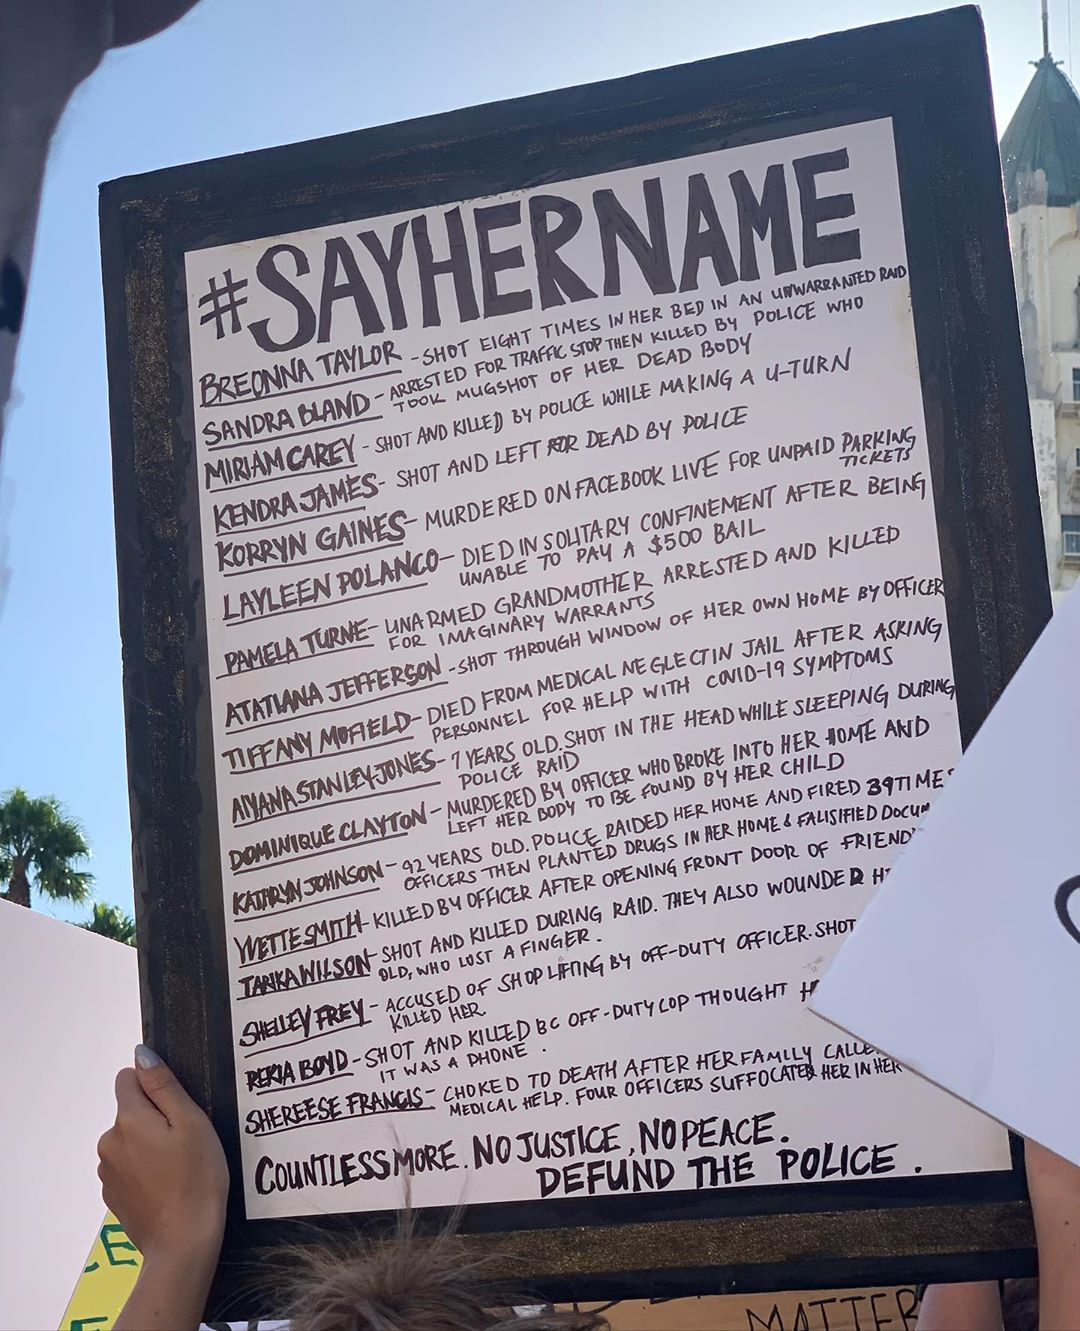 #SAYHERNAME
BREONNA TAYLOR - SHOT EIGHT TIMES IN HER BED IN AN UNWARRANTED RAID
SANDRA BLAND - ARRESTED FOR TRAFFIC STOP THEN KILLED BY POLICE WHO
TOOK MUGSHOT OF HER DEAD BODY
MIRIAM CAREY - SHOT AND KILLED BY POLICE WHILE MAKING A U-TURN
KENDRA JAMES - SHOT AND LEFT FOR DEAD BY POLICE
KORRYN GAINES - MURDERED ON FACEBOOK LIVE FOR UNPAID PARKING
TICKETS
LAYLEEN POLANCO - DIED IN SOLITARY CONFINEMENT AFTER BEING
UNABLE TO PAY A $500 BAIL
PAMELA TURNE - UNARMED GRANDMOTHER ARRESTED AND KILLED
FOR IMAGINARY WARRANTS
ATATIANA JEFFERSON - SHOT THROUGH WINDOW OF HER OWN HOME BY OFFICER
TIFFANY MOFIELD - DIED FROM MEDICAL NEGLECT IN JAIL AFTER ASKING
PERSONNEL FOR HELP WITH COVID-19 SYMPTOMS
AIYANA STANLEY-JONES - 7 YEARS OLD. SHOT IN THE HEAD WHILE SLEEPING DURING
POLICE RAID
DOMINIQUE CLAYTON - MURDERED BY OFFICER WHO BROKE INTO HER HOME AND
LEFT HER BODY TO BE FOUND BY HER CHILD
KATHRYN JOHNSON - 92 YEARS OLD. POLICE RAIDED HER HOME AND FIRED 39 TIMES
OFFICERS THEN PLANTED DRUGS IN HER HOME & FALISIFIED DOCUM
YVETTE SMITH - KILLED BY OFFICER AFTER OPENING FRONT DOOR OF FRIEND
TARIKA WILSON - SHOT AND KILLED DURING RAID. THEY ALSO WOUNDED H
OLD, WHO LOST A FINGER.
SHELLEY FREY - ACCUSED OF SHOPLIFTING BY OFF-DUTY OFFICER. SHOT
KILLED HER.
REKIA BOYD - SHOT AND KILLED BC OFF-DUTY COP THOUGHT H
IT WAS A PHONE.
SHEREESE FRANCIS - CHOKED TO DEATH AFTER HER FAMILY CALLE
MEDICAL HELP. FOUR OFFICERS SUFFOCATED HER IN HER
COUNTLESS MORE. NO JUSTICE, NO PEACE.
DEFUND THE POLICE.
MATTER